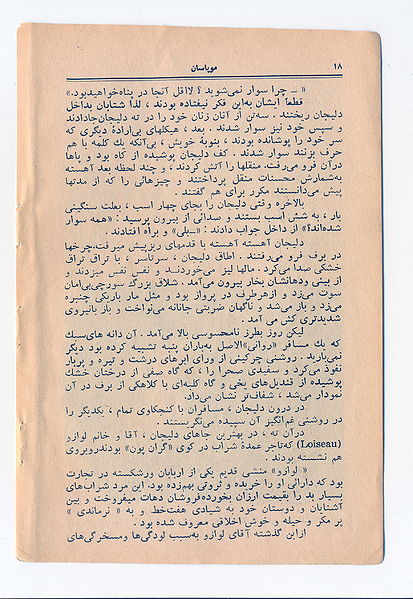 ۱۸
موپاسان
« ــ چرا سوار نمی‌شوید ؟ لااقل آنجا در پناه‌خواهیدبود.»
قطعاً ایشان به‌این فکر نیفتاده بودند ، لذا شتابان بداخل
دلیجان ریختند . سه‌تن از آنان زنان خود را در ته دلیجان‌جادادند
و سپس خود نیز سوار شدند . بعد ، هیکلهای بی‌اراده دیگری که
سر خود را پوشانده بودند ، بنوبهٔ خویش ، بی‌آنکه یك کلمه با هم
حرف بزنند سوار شدند . کف دلیجان پوشیده از کاه بود و پاها
درآن فرو می‌رفت. منقلها را آتش کردند ، و چند لحظه بعد آهسته
به‌شمارش محسنات منقل پرداختند و چیزهائی را که از مدتها
پیش می‌دانستند مکرر برای هم گفتند .
بالاخره وقتی دلیجان را بجای چهار اسب ، بعلت سنگینی
بار ، به شش اسب بستند و صدائی از بیرون پرسید : «همه سوار
شده‌اند؟» از داخل جواب دادند : «ــبلی» و براه افتادند .
دلیجان آهسته آهسته با قدمهای ریزپیش میرفت.چرخها
در برف فرو می‌رفتند . اطاق دلیجان ، سرتاسر ، با تراق تراق
خشکی صدا می‌کرد . مالها لیز می‌خوردنــد و نفس نفس میزدند و
از بینی ودهانشان بخار بیرون می‌آمد . شلاق بزرگ سورچی‌بی‌امان
سوت می‌زد و ازهرطرف در پرواز بود و مثل مار باریکی چنبره
می‌زد و باز می‌شد و ناگهان ضربتی جانانه می‌نواخت و باز بانیروی
شدیدتری کش می آمد .
لیکن روز بطرز نامحسوسی بالا می‌آمد . آن دانه های‌سبك
که یك مسافر «روانی»الاصل به‌باران پنبه تشبیه کرده بود دیگر
نمی‌بارید . روشنی چرکینی از ورای ابرهای درشت و تیره و پربار
نفوذ می‌کرد و سفیدی صحرا را ، که گاه صفی از درختان خشك
پوشیده از قندیل‌های یخی و گاه کلبه‌ای با کلاهکی از برف در آن
نمودار می‌شد ، شفاف‌تر نشان می‌داد.
در درون دلیجان ، مسافران با کنجکاوی تمام ، یکدیگر را
در روشنی غم‌انگیز آن سپیده می‌نگریستند .
درآن ته ، در بهترین جاهای دلیجان ، آقا و خانم لوازو
(Loiseau) که‌تاجر عمدهٔ شراب در کوی «گران پون» بودندروبروی
هم نشسته بودند .
« لوازو» منشی قدیم یکی از اربابان ورشکسته در تجارت
بود که دارائی او را خریده و ثروتی بهم‌زده بود. این مرد شراب‌های
بسیار بد را بقیمت ارزان بخورده‌فروشان دهات میفروخت و بین
آشنایان و دوستان خود به شیادی هفت‌خط و به « نرماندی »
پر مکر و حیله و خوش اخلاقی معروف شده بود .
ازاین گذشته آقای لوازو به‌سبب لودگی‌ها ومسخرگی‌های